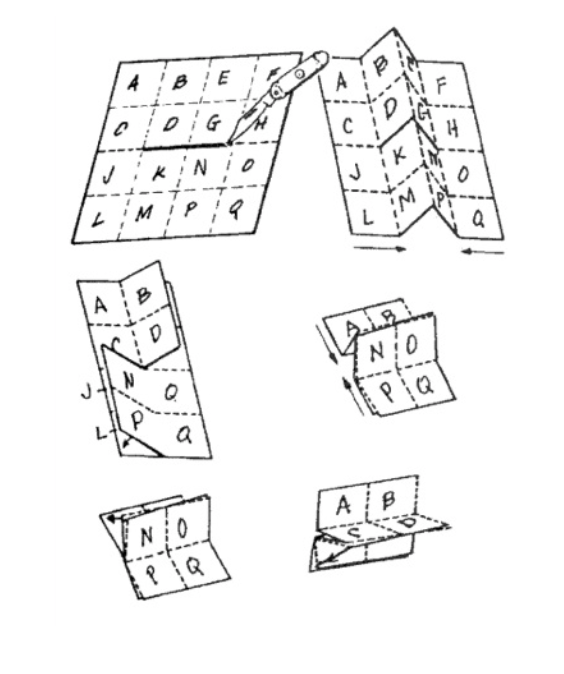 A B E F
C D G H
J K N O
L M P Q
A B F
C D G H
J K N O
L M P Q
A B
C D
J N O
L P Q
A B
N O
P Q
N O
P Q
A B
C D